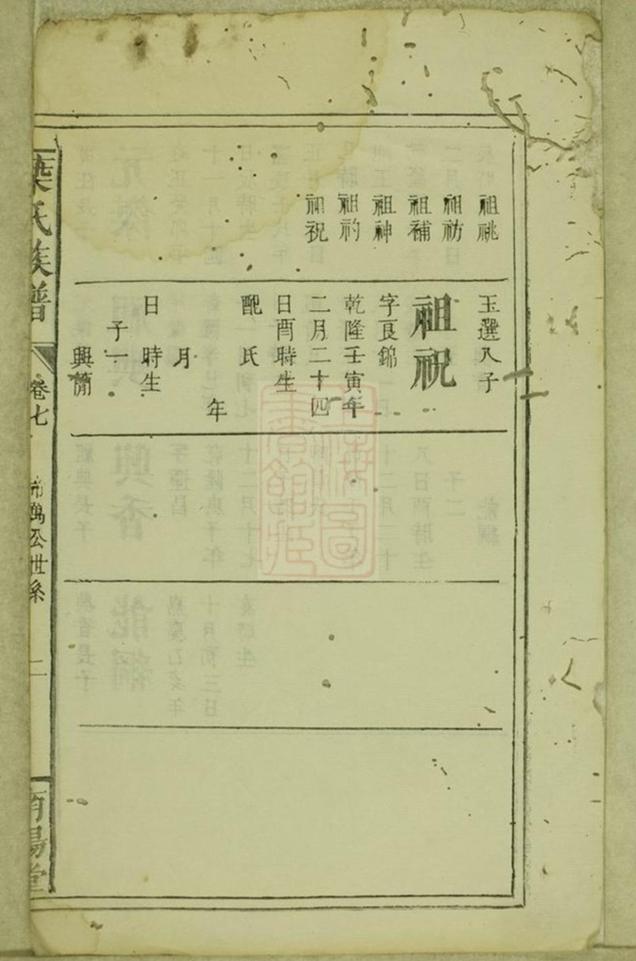 祖祧
祖祊
祖補
祖神
祖礿
祖祝
玉選八子
祖祝
字良錦
乾隆壬寅年
二月二十四
日酉時生
配 氏
年
月
日 時生
子一
興簡
葉氏族譜
卷七
萬公世系
二
南陽堂